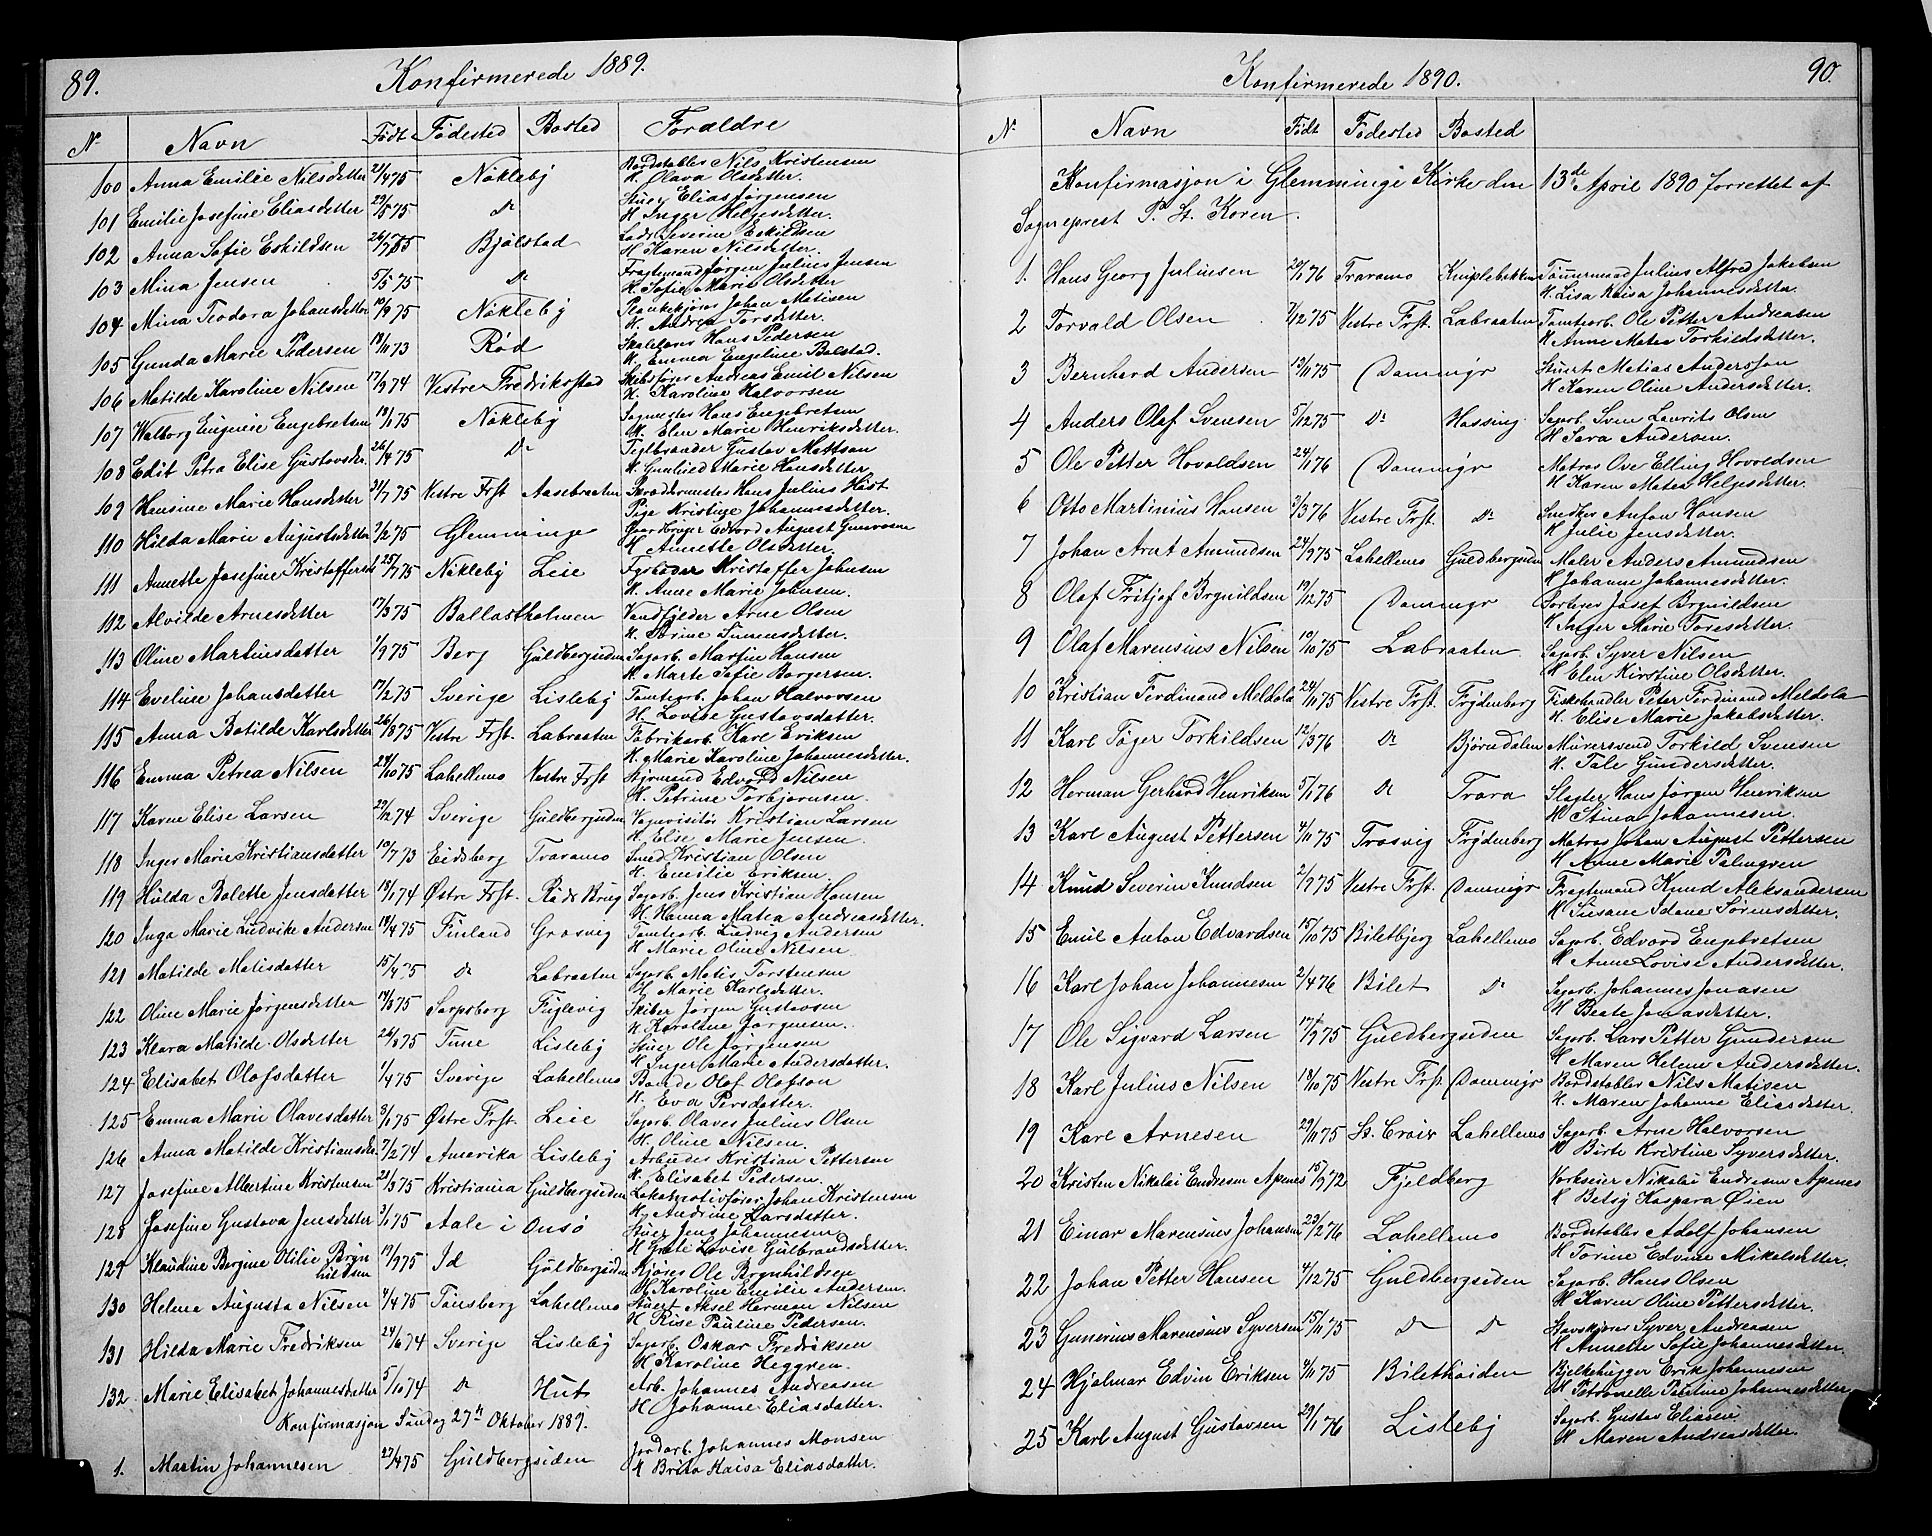 89.
Konfirmerede 1889.
N. Navn Født Fødested Bosted Foraldre
100 Anna Emilie Nilsdetter 21/4 75 Nöklebÿ Bordstabler Nils Kristensen
H. Olava Olsdetter.
101 Emilie Josefine Eliasdetter 29/5 75 Do Stuer Elias Jørgensen
H Inger Helgesdetter.
102 Anna Sofie Eskildsen 26/7 75 Bjölstad Severin Eskildsen
H Karen Nilsdetter.
103 Mina Jensen 5/5 75 Do Fragtemand Jørgen Julius Jensen
H. Sofie Marie Olsdetter
104 Mina Teodora Johansdetter 10/9 75 Nöklebÿ Plankekjører Johan Matisen
H. Andrea Torsdetter.
105 Gunda Marie Pedersen 19/11 73 Röd Hans Pedersen
H. Emma Engeline Bolstad.
106 Matilde Karoline Nilsen 17/9 74 Vestre Fredriksstad Skibsfører Andreas Emil Nilsen
H. Karoline Halvorsen
107 Walborg Eugenie Engebretsen 18/1 75 Nöklebÿ Sagmester Hans Engebretsen
H. Elen Marie Henriksdetter.
108 Edit Petra Elise Gustavsdtr. 26/4 75 Do Teglbrander Gustav Mattsan
H. Gunlied Marie Hansdetter
109 Hansine Marie Hansdetter 31/7 75 Vestre Frst Aasebraaten Skræddermester Hans Julius Höst
Pige Kristine Johannesdetter.
110 Hilda Marie Augustsdetter 2/2 75 Glemminge Gaardbruger Edvard August Gunerosen
H Annette Olsdetter.
111 Annette Josefine Kristoffersen 25/7 75 Nöklebÿ Leie Kristoffer Johnsen
H. Anne Marie Johnsen.
112 Alvilde Arnesdetter 17/3 75 Ballastholmen Vandfÿlder Arne Olsen
H. Trine
113 Oline Martinsdatter 1/9 75 Berg Guldbergsiden Sagarb. Martin Hansen
H Marte Sofie Borgersen.
114 Eveline Johansdatter 17/2 75 Sverige Lislebÿ Tomtearb. Johan Halvorsen
H. Lovise Gustavsdatter.
115 Anna Botilde Karlsdetter 26/3 75 Vestre Frst. Labraaten Fabrikarb. Karl Eriksen
H. Marie Karoline Johannesdetter.
116 Emma Petrea Nilsen 28/10 75 Lahellemo Vestre Frst Stÿrmand Edvard Nilsen
H. Petrine Torbjørnsen.
117 Karen Elise Larsen 29/12 74 Sverige Guldbergsiden Vognvisitør Kristian Larsen
H. Elise Marie Jensen.
118 Inger Marie Kristiansdatter 10/7 73 Eidsberg Traramo Smed Kristian Olsen
H. Emilie Eriksen.
119 Hulda Bolette Jensdatter 18/1 74 Østre Frst. Röds Brug Sagarb. Jens Kristian Hansen
H. Hanna Matea Andreasdetter.
120 Inga Marie Ludvike Andersen 18/4 75 Finland Grosvig Tomtearb. Ludvig Andersen
H Marie Oline Nilsen.
121 Matilde Matisdatter 15/4 75 Do Labraaten Sagarb. Matis Torstensen
H. Marie Karlsdetter.
122 Oline Marie Jørgensdetter 19/3 75 Sarpsborg Fuglevig Skiber Jørgen Gustavsen
H. Karoline Jørgensen.
123 Klara Matilde Olsdetter 26/3 75 Tune Lislebÿ Stuer Ole Jørgensen
H Inger Marie Andersdatter.
124 Elisabet Olofsdatter 1/4 75 Sverige Lahellemo Bonde Olof Olofson
H. Eva Persdatter.
125 Emma Marie Olavesdatter 3/1 75 Østre Frst. Leie Sagarb. Olaves Julius Olsen
H. Oline Nilsen.
126 Anna Matilde Kristiansdtr. 7/2 74 Amerika Lislebÿ Arbeider Kristian Pettersen
H. Elisabet Pedersen.
127 Josefine Albertine Kristensen 21/3 75 Kristiania Guldbergsiden Lokomotivfører Johan Kristensen
H. Andrine Larsdatter.
128 Josefine Gustava Jensdetter 3/1 75 Aale i Onsö Stuer Jens Johannesen
H Grete Lovise Gulbrandsdetter.
129 Klaudine Bergine Otilie Bryn
hildsen 19/9 75 Id Guldbergsiden Kjører Ole Brynhildsen
H. Karoline Emilie Andersen.
130 Helma Augusta Nilsen 4/4 75 Tönsberg Lahellemo Stuert Aksel Herman Nilsen
H Rise Pauline Pedersen.
131 Hilda Marie Fredriksen 24/6 74 Sverige Lislebÿ Sagarb. Oskar Fredriksen
H Karoline Heggren.
132 Marie Elisabet Johannesdetter 5/10 74 Do Hut Arb. Johannes Andreasen
H Johanne Eliasdatter.
Konfirmasjon Søndag 27de Oktober 1889.
1. Martin Johannesen 27/4 75 Guldbergsiden Jordarb. Johannes Monsen
H Brita Kaisa Eliasdatter.
90.
Konfirmerede 1890.
N. Navn Født Fødested Bosted
Konfirmasjon i Glemminge Kirke den 13de April 1890 forrettet af
Sogneprest P. St. Koren.
1. Hans Georg Juliusen 20/1 76 Traramo Kniplebakken Tömmermand Julius Alfred Jakobsen
H. Lisa Kaisa Johannesdetter
2 Torvald Olsen 7/12 75 Vestre Frst. Labraaten Tomtearb. Ole Petter Andreasen
H Anne Matea Torkildsdetter.
3 Bernhard Andersen 13/11 75 Dammÿr Stuert Matias Andersson
H Karen Oline Andersdetter.
4 Anders Olaf Svensen 5/12 75 Do Hassing Sagarb. Sven Laurits Olsen
H Sara Andersen.
5 Ole Petter Hovoldsen 24/1 76 Dammÿr Matros Ove Elling Hovoldsen
H Karen Matea Helgesdetter.
6 Otto Martinius Hansen 3/3 76 Vestre Frst. Do Snedker Anton Hansen
H Julie Jensdetter.
7 Johan Arnt Amundsen 24/9 75 Lahellemo Guldbergsiden Maler Anders Amundsen
H Johanne Johannesdetter.
8 Olaf Fritjof Brynildsen 19/12 75 Dammÿr Sorterer Josef Brynildsen
H Inger Marie Toresdetter.
9 Olaf Marensius Nilsen 10/10 75 Labraaten Sagarb. Syver Nilsen
H Elen Kirstine Olsdetter.
10 Kristian Ferdinand Meldola 29/11 75 Vestre Frst. Frydenberg Fiskehandler Peter Ferdinand Meldola
H. Elise Marie Jakobsdetter.
11 Karl Töger Torkildsen 12/3 76 Do Bjørndalen Murersvend Torkild Svensen
H. Tale Gundersdetter.
12 Herman Gerhard Henriksen 5/1 76 Do Trara Slagter Hans Jørgen Henriksen
H Stina Johannesen.
13 Karl August Pettersen 4/11 75 Trosvig Frydenberg Matros Johan August Pettersen
H Anne Marie Palmgren
14 Knud Severin Knudsen 2/9 75 Vestre Frst. Dammÿr Fragtemand Knud Aleksandersen
H Susane Idane Sørensdetter.
15 Emil Anton Edvardsen 15/10 75 Biletbjerg Lahellemo Sagarb. Edvard Engebretsen
H Anne Lovise Andersdetter.
16 Karl Johan Johannesen 2/4 76 Bilet Do Sagarb. Johannes Jonasen
H Beate Jonasdetter.
17 Ole Sigvard Larsen 17/9 75 Guldbergsiden Sagarb. Lars Petter Gundersen
H Maren Helene Andersdetter.
18 Karl Julius Nilsen 18/10 75 Vestre Frst. Dammÿr Bordstabler Nils Matisen
H. Maren Johanne Eliasdetter.
19 Karl Arnesen 29/11 75 St. Croix Lahellemo Sagarb. Arne Halvorsen
H Birte Kristine Syversdetter.
20 Kristen Nikolai Endresen Apenes 15/9 72 Fjeldberg Værkseier Nikolai Endresen Apenes
H Betsy Kaspara Øien
21 Einar Marensius Johansen 23/2 76 Lahellemo Bordstabler Adolf Johansen
H Torine Edvine Mikelsdetter.
22 Johan Petter Hansen 4/12 75 Guldbergsiden Sagarb. Hans Olsen
H Karen Oline Pettersdetter.
23 Gunerius Marensius Syversen 15/11 75 Do Do Stavskjører Syver Andreasen
H Annette Sofie Johannesdetter.
24 Hjalmar Edvin Eriksen 9/11 75 Bilethöiden Bjelkehugger Erik Johannesen
H Petronelle Pauline Johannesdetter
25 Karl August Gustavsen 29/1 76 Lislebÿ Sagarb. Gustav Eliasen
H Maren Andreasdetter.